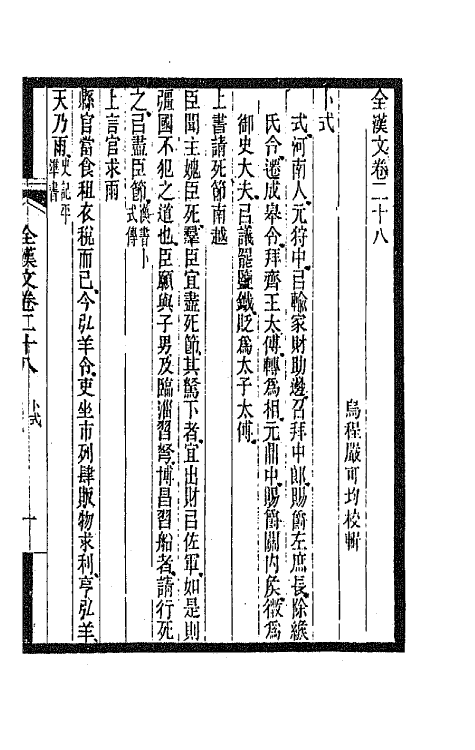 全漢文卷二十八
烏程嚴可均校輯
卜式
式河南人元狩中㠯輸家財助邊召拜中郎賜爵左庶長除緱
氏令遷成皋令拜齊王太傅轉爲相元鼎中賜爵關內矦徵爲
御史大夫㠯議罷鹽鐵貶爲太子太傅
上書請死節南越
臣聞主媿臣死羣臣宜盡死節其駑下者宜出財㠯佐軍如是則
彊國不犯之道也臣願與子男及臨淄習弩博昌習船者請行死
之㠯盡臣節漢書卜式傳
上言官求雨
縣官當食租衣稅而已今弘羊令吏坐市列肆販物求利亨弘羊
天乃雨史記平準書
全漢文卷二十八
卜式
一